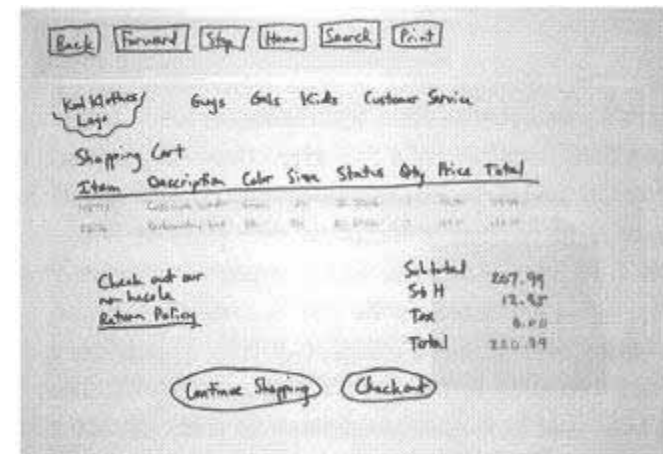 Back Forward Stop Home Search Print
Kool Klothes Guys Gals Kids Customer Service
Logo
Shopping Cart
Item Description Color Size Status Qty Price Total
Check out our
no-hassle
Return Policy
Subtotal 207.99
S&H 12.95
Tax 0.00
Total 220.94
Continue Shopping Checkout